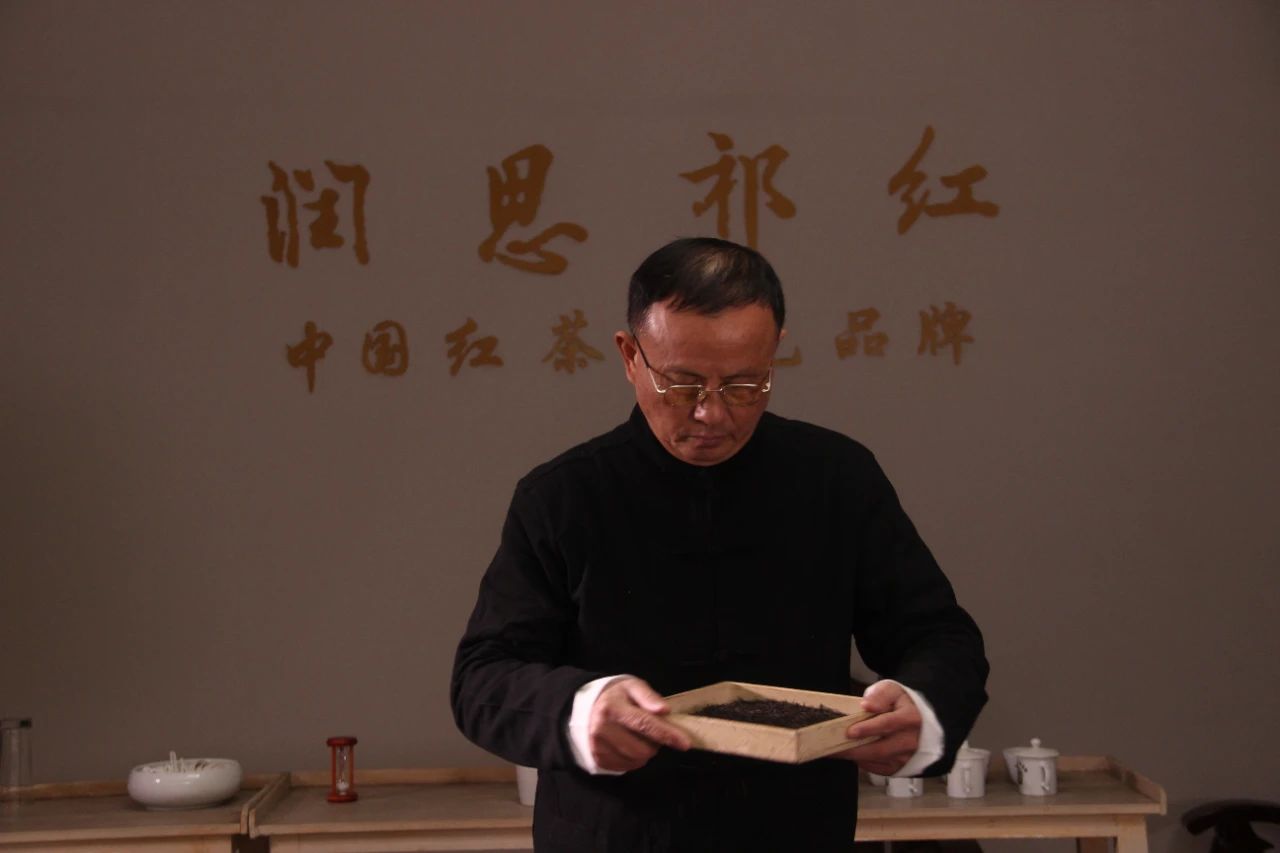 润思祁红
中国红茶 品牌